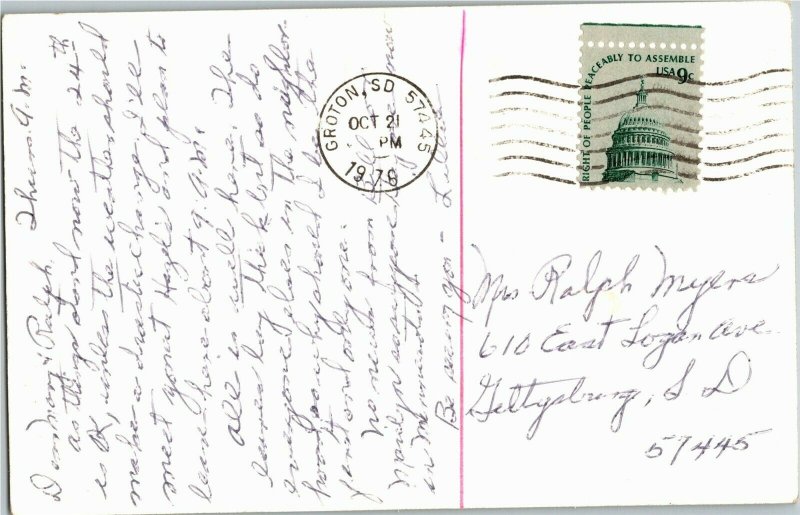 Thurs. A.M.
Ralph.
as things stand now the 24th
is OK, unless the weather should
make a drastic change. I'll
meet you at Hazel's and plan to
leave here about 9 A.M.
All is well here. The
leaves lay thick but as do
everyone else's in the neighbor-
hood, so why should I be the
first and only one.
No news from
now
in
Be seeing you -
GROTON, SD 57445
OCT 21
PM
1976
RIGHT OF PEOPLE PEACEABLY TO ASSEMBLE
USA 9c
Mrs Ralph Myers
610 East Logan Ave.
Gettysburg, S D
57445